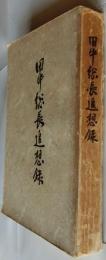 田中総長追想録
田中総長追想録